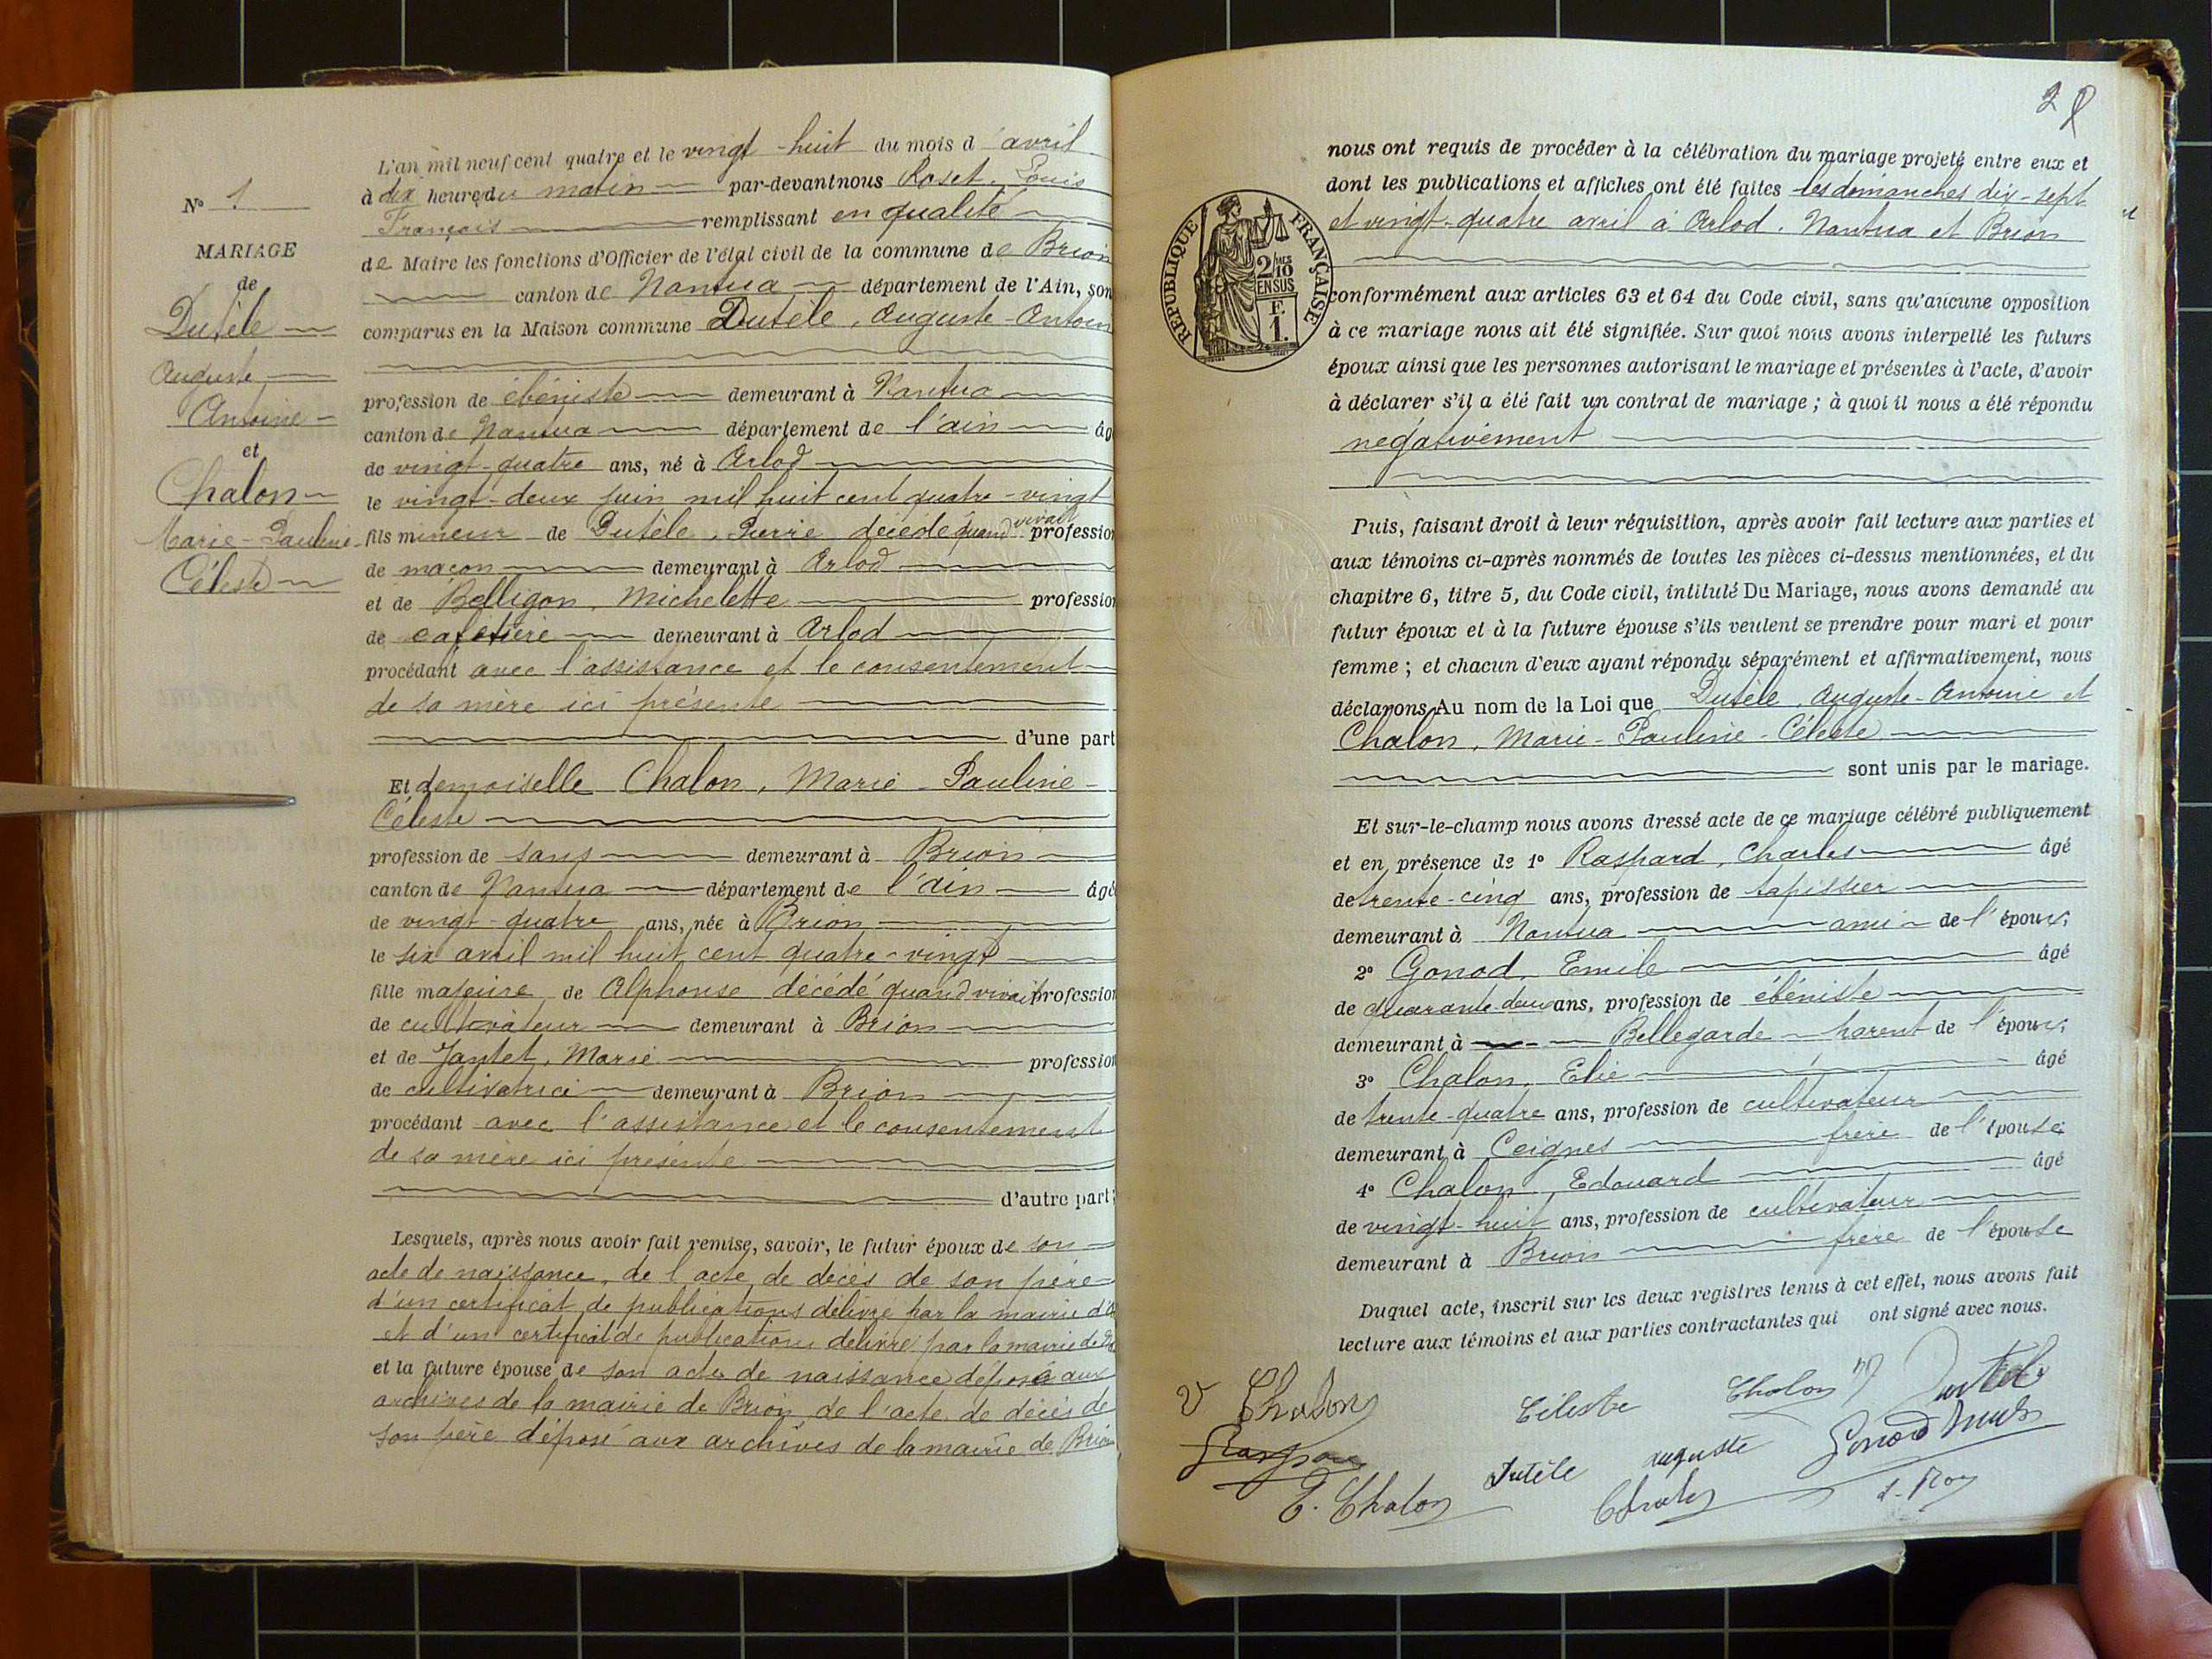 L'an mil neuf cent quatre et le vingt-huit du mois d'avril
à dix heures du matin par-devant nous Roset, Louis
François remplissant en qualité
de Maire les fonctions d'Officier de l'état civil de la commune de Brion
canton de Nantua département de l'Ain, son
comparus en la Maison commune Dutèle, Auguste-Antoin
profession de ébéniste demeurant à Nantua
canton de Nantua département de l'ain âg
de vingt-quatre ans, né à Arlod
le vingt-deux juin mil huit cent quatre-vingt
fils mineur de Dutèle, Pierre décédé quand vivait profession
de maçon demeurant à Arlod
et de Belligon, Michelette profession
de cafetière demeurant à Arlod
procédant avec l'assistance et le consentement
de sa mère ici présente
d'une part
Et demoiselle Chalon, Marie-Pauline-
Céleste
profession de sans demeurant à Brion
canton de Nantua département de l'ain âgé
de vingt-quatre ans, née à Brion
le six avril mil huit cent quatre-vingt
fille majeure de Alphonse décédé quand vivait profession
de cultivateur demeurant à Brion
et de Jantet, Marie profession
de cultivatrice demeurant à Brion
procédant avec l'assistance et le consentement
de sa mère ici présente
d'autre part;
Lesquels, après nous avoir fait remise, savoir, le futur époux de son
acte de naissance, de l'acte de décès de son père
d'un certificat de publications délivré par la mairie d'
et d'un certificat de publications délivré par la mairie de
et la future épouse de son acte de naissance déposé aux
archives de la mairie de Brion, de l'acte de décès de
son père déposé aux archives de la mairie de Brion
N° 1
MARIAGE
de
Dutèle
Auguste
Antoine
et
Chalon
Marie-Pauline
Céleste
28
nous ont requis de procéder à la célébration du mariage projeté entre eux et
dont les publications et affiches ont été faites les dimanches dix-sept
et vingt-quatre avril à Arlod, Nantua et Brion
conformément aux articles 63 et 64 du Code civil, sans qu'aucune opposition
à ce mariage nous ait été signifiée. Sur quoi nous avons interpellé les futurs
époux ainsi que les personnes autorisant le mariage et présentes à l'acte, d'avoir
à déclarer s'il a été fait un contrat de mariage; à quoi il nous a été répondu
négativement
Puis, faisant droit à leur réquisition, après avoir fait lecture aux parties et
aux témoins ci-après nommés de toutes les pièces ci-dessus mentionnées, et du
chapitre 6, titre 5, du Code civil, intitulé Du Mariage, nous avons demandé au
futur époux et à la future épouse s'ils veulent se prendre pour mari et pour
femme; et chacun d'eux ayant répondu séparément et affirmativement, nous
déclarons Au nom de la Loi que Dutèle, Auguste-Antoine et
Chalon, Marie-Pauline-Céleste
sont unis par le mariage.
Et sur-le-champ nous avons dressé acte de ce mariage célébré publiquement
et en présence de 1° Raspard, Charles âgé
de trente-cinq ans, profession de tapissier
demeurant à Nantua ami de l'époux;
2° Gonod, Emile âgé
de quarante-deux ans, profession de ébéniste
demeurant à Bellegarde parent de l'époux;
3° Chalon, Elie âgé
de trente-quatre ans, profession de cultivateur
demeurant à Ceignes frère de l'épouse;
4° Chalon, Edouard âgé
de vingt-huit ans, profession de cultivateur
demeurant à Brion frère de l'épouse
Duquel acte, inscrit sur les deux registres tenus à cet effet, nous avons fait
lecture aux témoins et aux parties contractantes qui ont signé avec nous.
Chalon
Céleste
Chalon
E. Chalon
Dutèle
auguste
Gonod
RÉPUBLIQUE FRANÇAISE
2/10 EN SUS
F.
1.